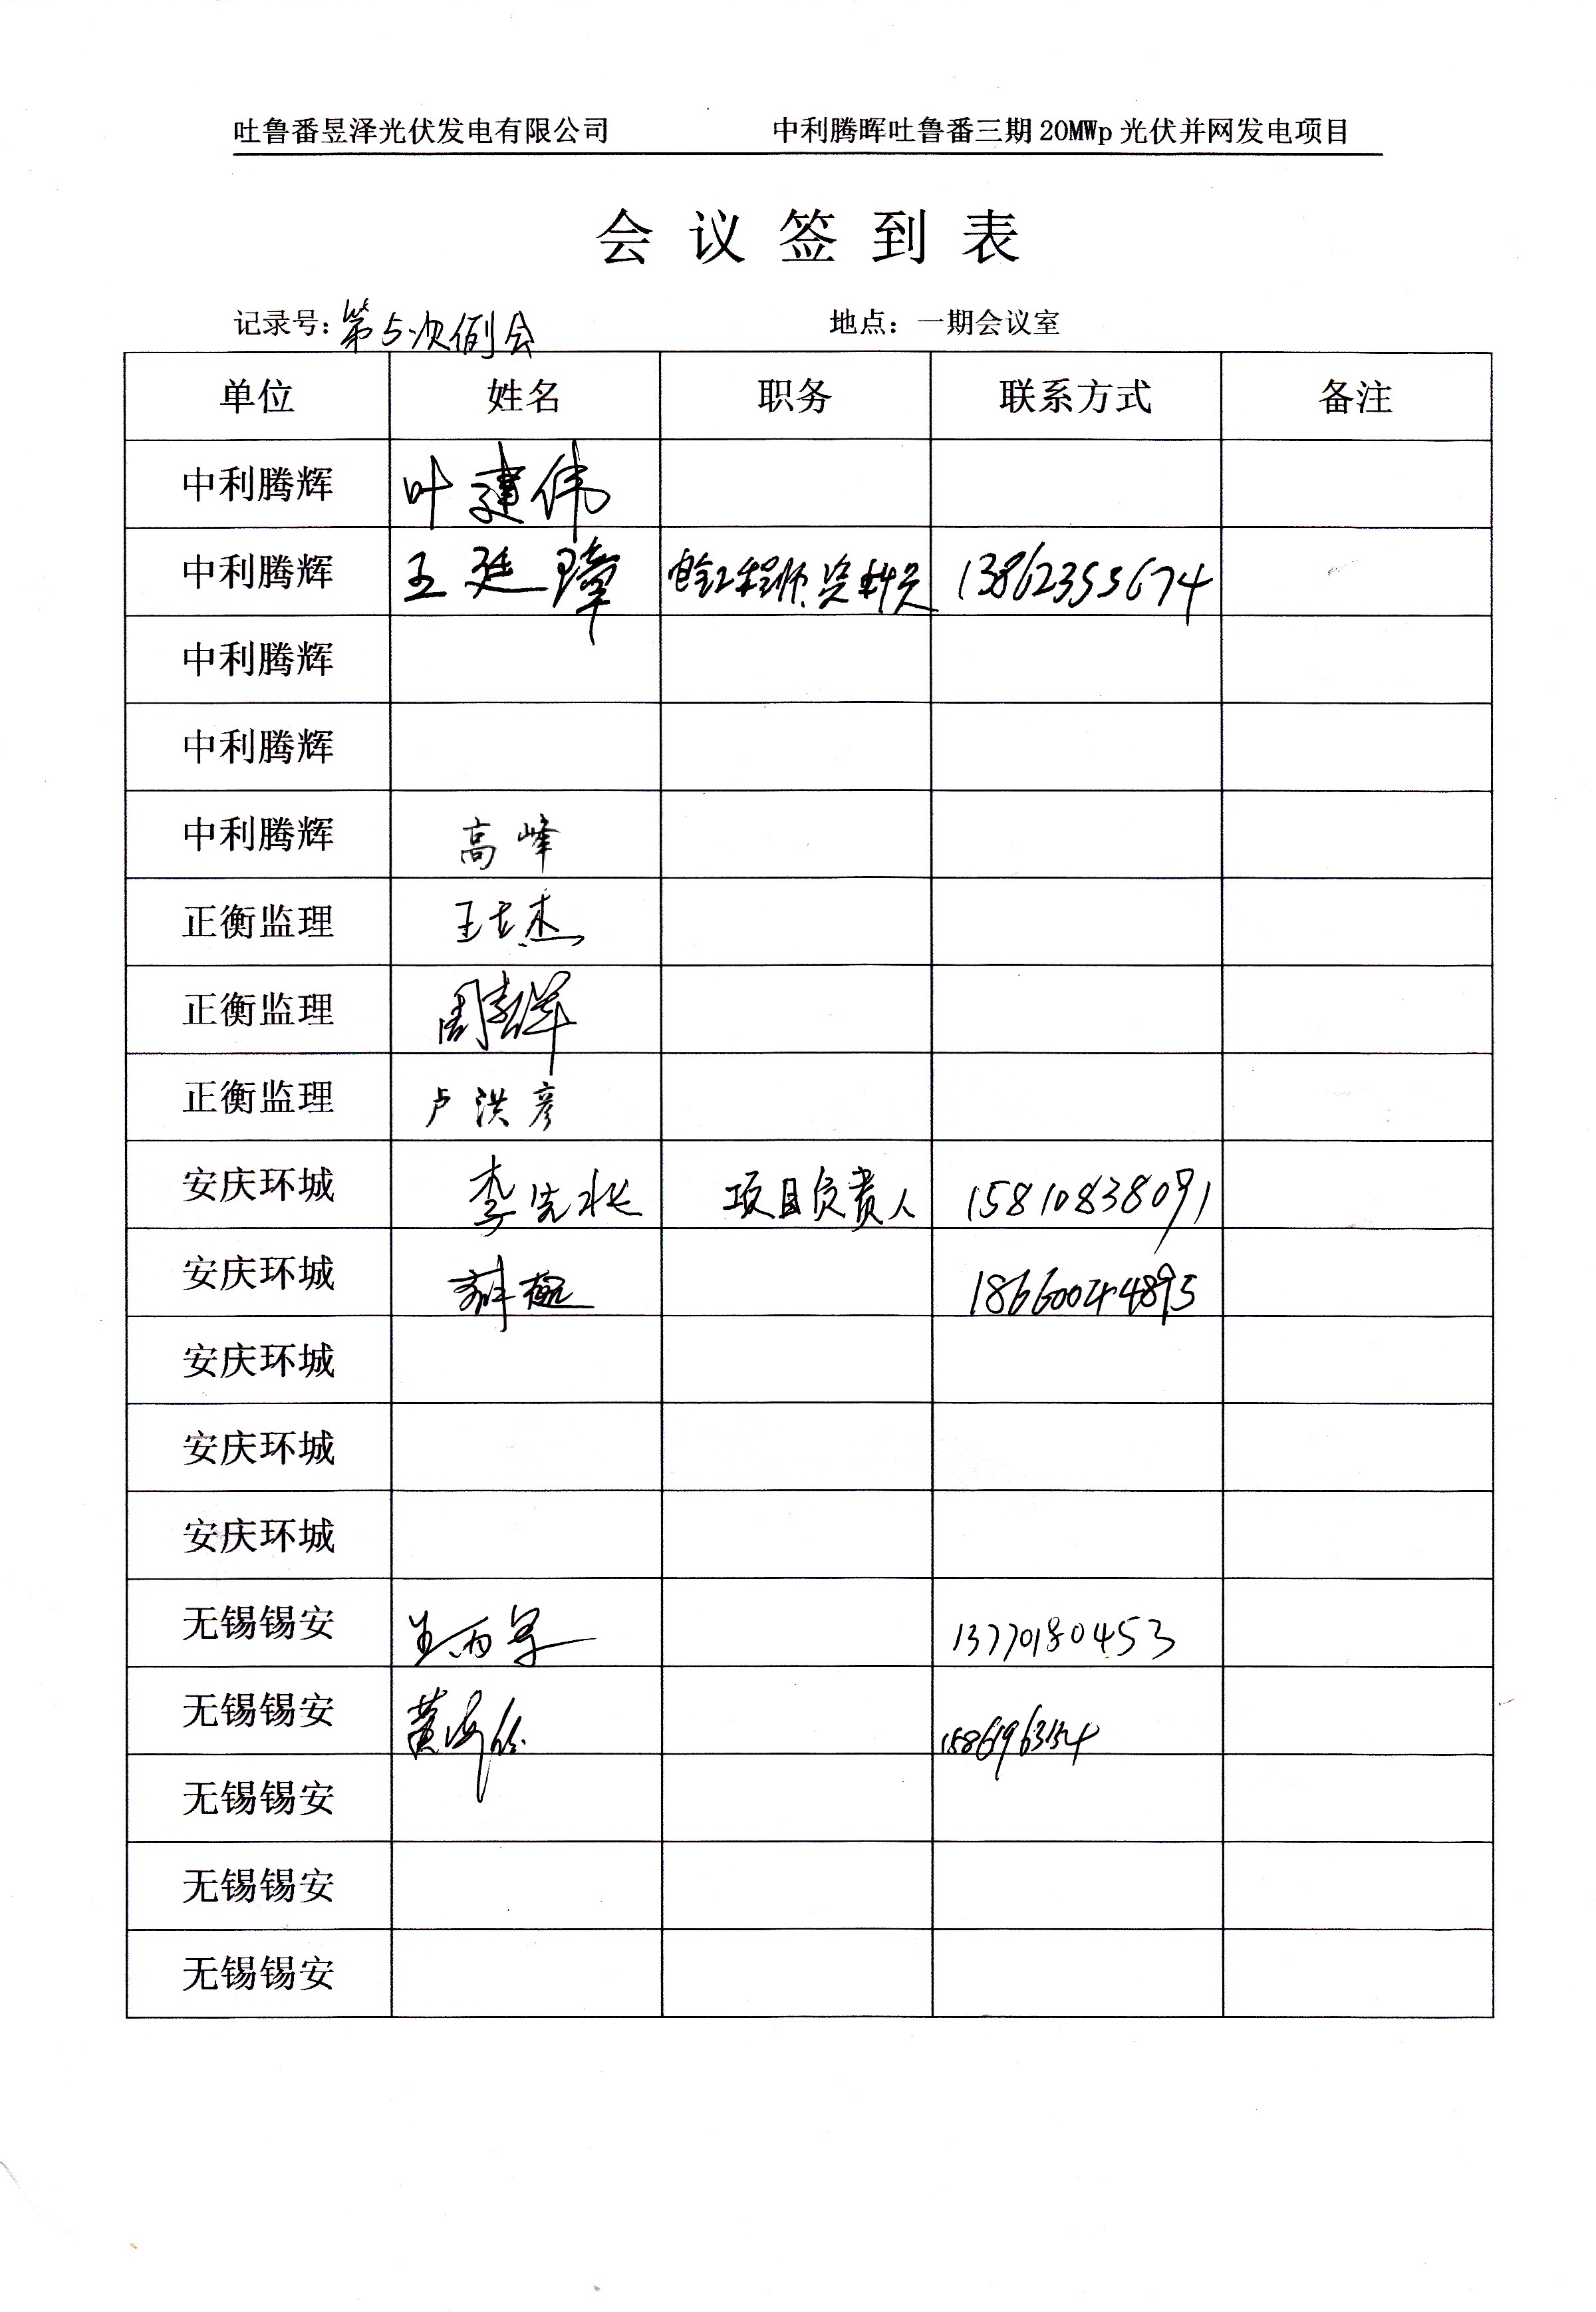 吐鲁番昱泽光伏发电有限公司 中利腾晖吐鲁番三期20MWp光伏并网发电项目
会议签到表
记录号：第5次例会 地点：一期会议室
单位 姓名 职务 联系方式 备注
中利腾辉 叶建伟
中利腾辉 王廷璋 工程师、资料员 13862355674
中利腾辉
中利腾辉
中利腾辉 高峰
正衡监理 王立杰
正衡监理 周
正衡监理 卢洪彦
安庆环城 李 项目负责人 15810838091
安庆环城 18660044895
安庆环城
安庆环城
安庆环城
无锡锡安 13770180453
无锡锡安 黄海
无锡锡安
无锡锡安
无锡锡安